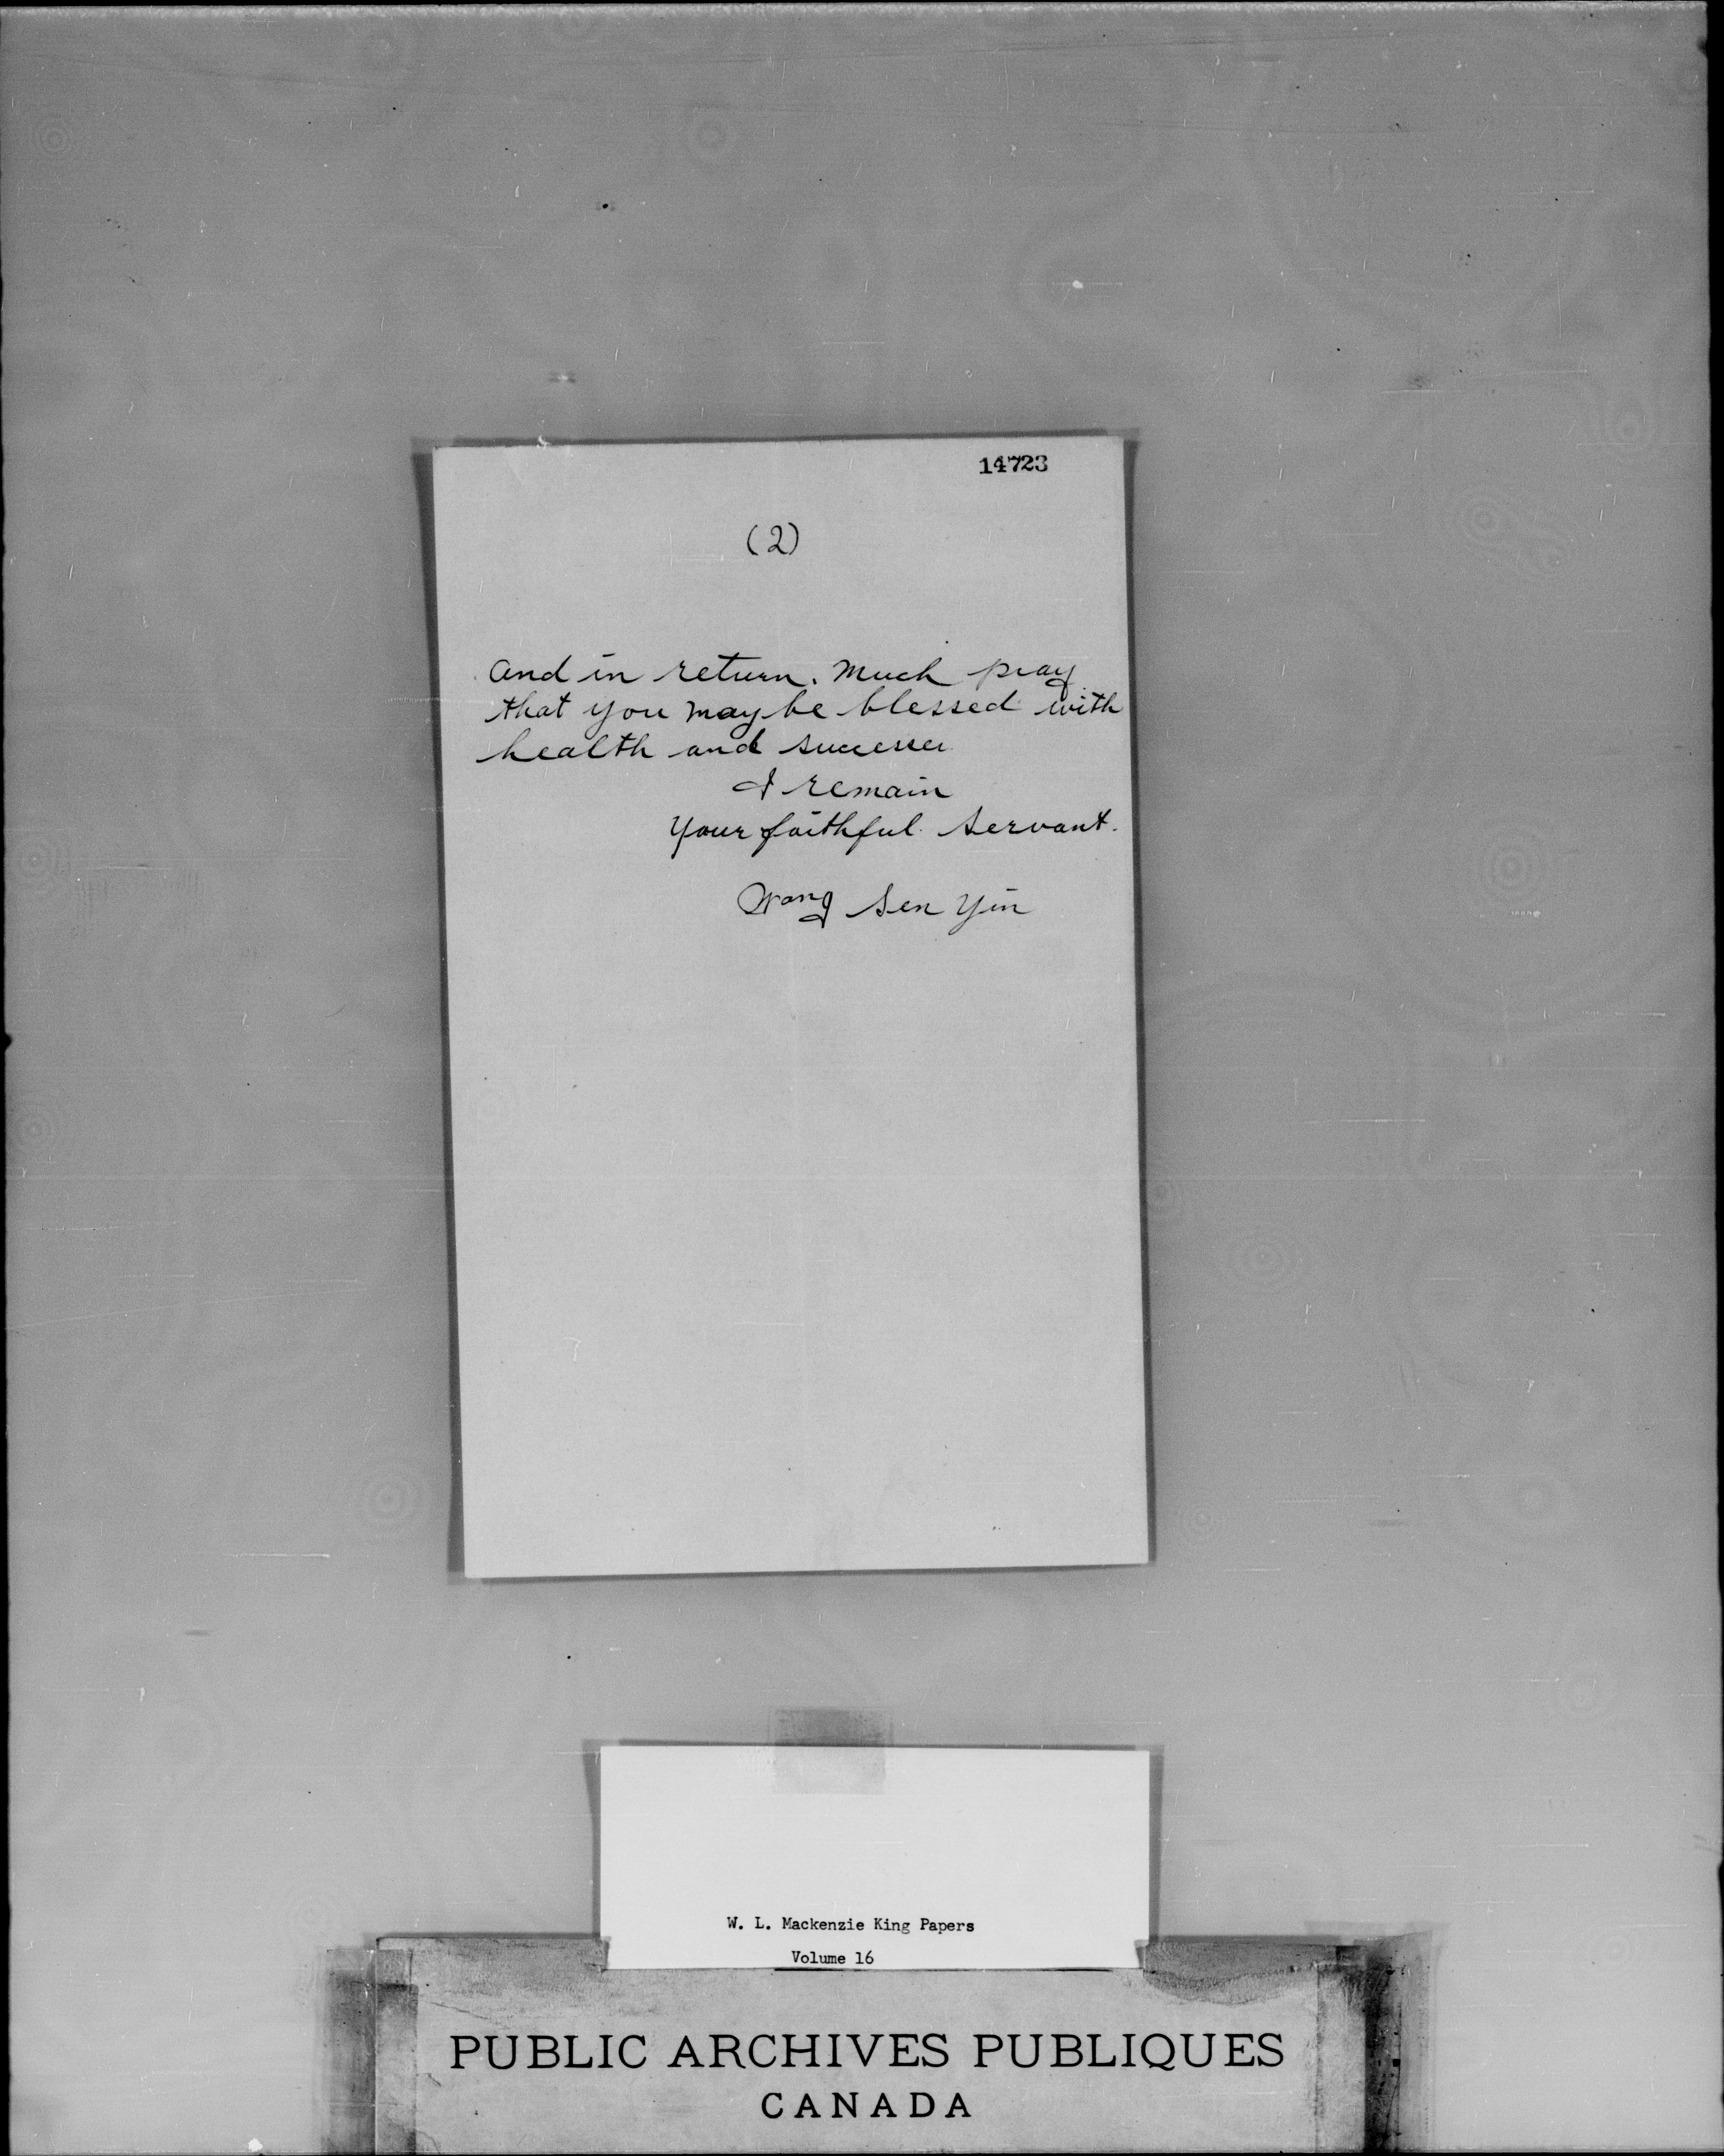 14723
(2)
and in return. Much pray
that you may be blessed with
health and success
I remain
Your faithful Servant.
Wong Sen Yin
W. L. Mackenzie King Papers
Volume 16
PUBLIC ARCHIVES PUBLIQUES
CANADA